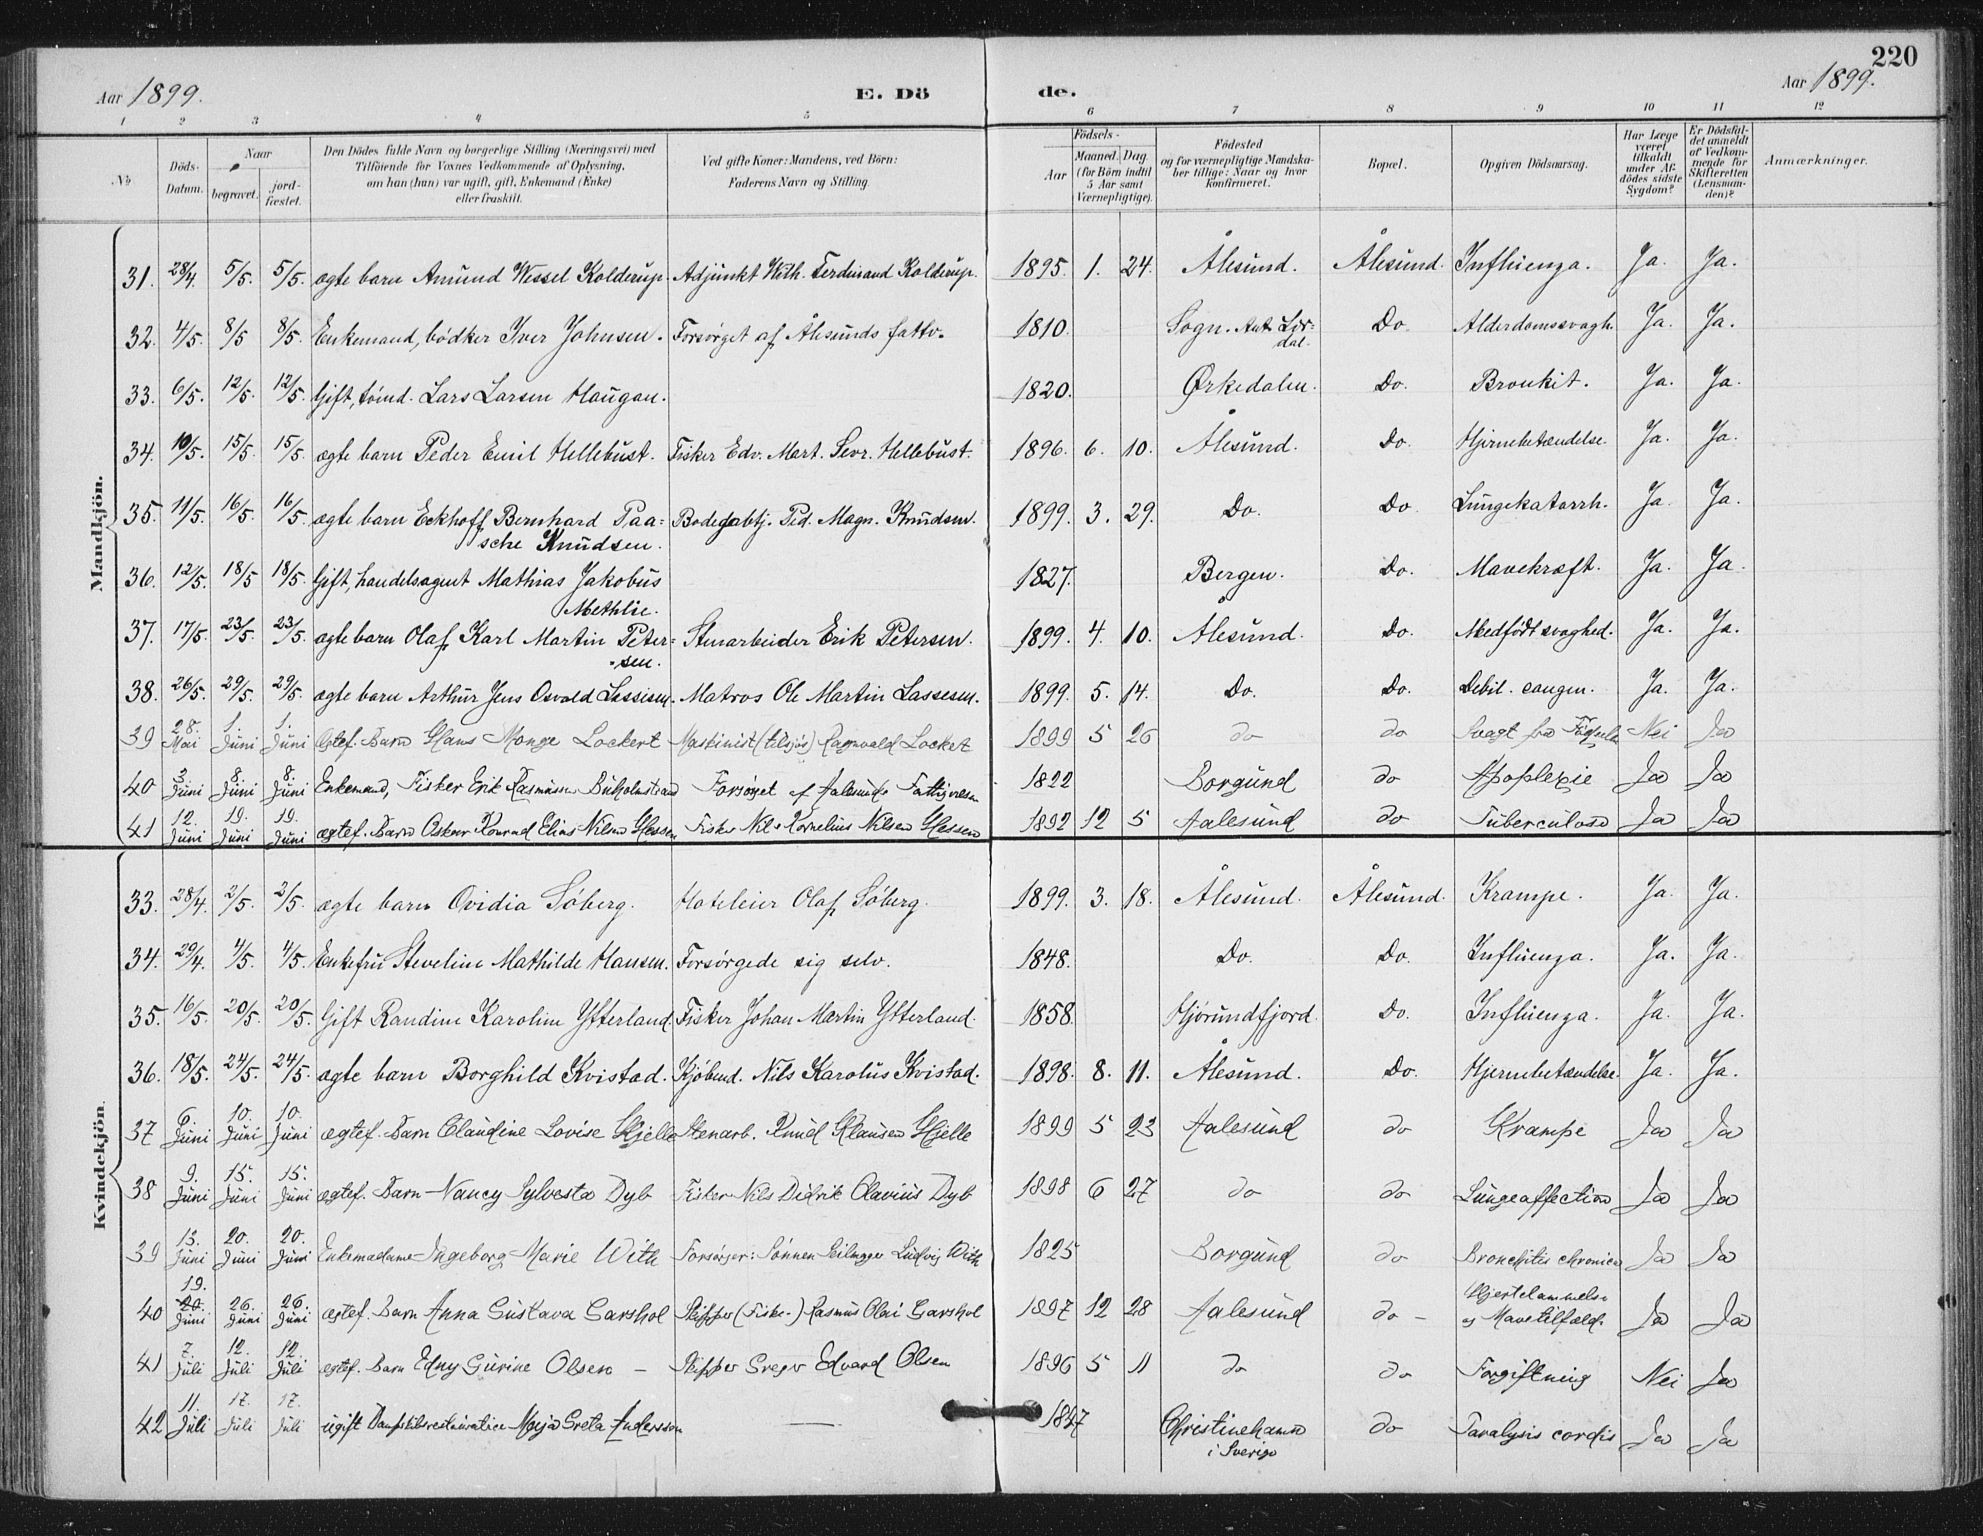 220
Aar 1899.
E. Dö
de.
Aar 1899.
1 2 3 4 5 6 7 8 9 10 11 12
No
Döds-Datum.
Naar
begravet.
jord-fæstet.
Den Dödes fulde Navn og borgerlige Stilling (Næringsvei) med
Tilföiende for Voxnes Vedkommende af Oplysning,
om han (hun) var ugift, gift, Enkemand (Enke)
eller fraskilt.
Ved gifte Koner: Mandens, ved Börn:
Faderens Navn og Stilling.
Födsels-
Aar
Maaned. Dag
(for Börn indtil
5 Aar samt
Værnepligtige).
Födested
og for værnepligtige Mandska-
ber tillige: Naar og hvor
konfirmeret.
Bopæl.
Opgiven Dödsaarsag.
Har Læge
været
tilkaldt
under Af-
dödes sidste
Sygdom?
Er Dödsfal-
det anmeldt
af Vedkom-
mende for
Skifteretten
(Lensman-
den)?
Anmærkninger.
Mandkjön.
31. 28/4. 5/5. 5/5. ægte barn Amund Wessel Kolderup. Adjunkt With. Ferdinand Kolderup. 1895. 1. 24. Ålesund. Ålesund. Influenza. Ja. Ja.
32. 4/5. 8/5 8/5. Enkemand, bödker Iver Johnsen. Forsørget af Ålesunds fattv. 1810. Sogn. Do. Alderdomssvagh. Ja. Ja.
33. 6/5. 12/5. 12/5. Gift, tøind. Lars Larsen Haugan. 1820. Ørkedalen. Do. Bronkit. Ja. Ja.
34. 10/5. 15/5. 15/5. ægte barn Peder Emil Hellebust. Fisker Edv. Mart. Sevr. Hellebust. 1896. 6. 10. Ålesund. Do. Hjernebetændelse. Ja. Ja.
35. 11/5. 16/5. 16/5. ægte barn Eckhoff Bernhard Paa-
sche Knudsen. Ped. Magn. Knudsen. 1899. 3. 29. Do. Do. Lungekatarrh. Ja. Ja.
36. 12/5. 18/5 18/5. Gift, handelsagent Mathias Jakobus
Methlie. 1827. Bergen. Do. Mavekræft. Ja. Ja.
37. 17/5. 23/5. 23/5. ægte barn Olaf Karl Martin Peter-
sen. Stenarbeider Erik Petersen. 1899. 4. 10. Ålesund. Do. Medfödt svaghed. Ja. Ja.
38. 26/5. 29/5. 29/5. ægte barn Arthur Jens Osvald Lassesen. Matros Ole Martin Lassesen. 1899. 5. 14. Do. Do. Debil. congen. Ja. Ja.
39 28. Mai 1. Juni 1. Juni Ægtef. Barn Hans Monge Lockert Maskinist (tilsjøs) Ragnvald Lockert 1899 5 26 do do Svagt fra Fødselen Nei Ja
40 3. Juni 8. Juni 8. Juni Enkemand, Fisker Erik Rasmussen Buholmstrand Forsørget af Aalesunds Fattigvæsen 1822 Borgund do Apoplexie Ja Ja
41 12. Juni 19. Juni 19. Juni ægtef. Barn Oskar Konrad Elias Nilsen Hessen Fisker Nils Kornelius Nilsen Hessen 1892 12 5 Aalesund do Tuberculose Ja Ja
Kvindekjön.
33. 28/4. 2/5. 2/5. ægte barn Ovidia Söberg. Hoteleier Olaf Söberg. 1899. 3. 18. Ålesund. Ålesund. Krampe. Ja. Ja.
34. 29/4. 4/5. 4/5. Enkefru Steveline Mathilde Hansen. Forsörgede sig selv. 1848. Do. Do. Influenza. Ja. Ja.
35. 16/5. 20/5. 20/5. Gift Randine Karoline Ytterland. Fisker Johan Martin Ytterland. 1858. Hjørundfjord. Do. Influenza. Ja. Ja.
36. 18/5. 24/5. 24/5. ægte barn Borghild Kvistad. Kjöbmd. Nils Karolus Kvistad. 1898. 8. 11. Ålesund. Do. Hjernebetændelse. Ja. Ja.
37 6 Juni 10. Juni 10. Juni ægtef. Barn Claudine Lovise Hjelle Stenarb. Knud Klausen Hjelle 1899 5 23 Aalesund do Krampe Ja Ja
38 9. Juni 15. Juni 15. Juni ægtef. Barn Nancy Sylvesta Dyb Fisker Nils Didrik Olavius Dyb 1898 6 27 do do Lungeaffection Ja Ja
39 13. Juni 20. Juni 20. Juni Enkemadame Ingeborg Marie With Forsörger: Sönnen Seilmager Ludvig With 1825 Borgund do Bronchitis chronica Ja Ja
40 19. 20. Juni 26. Juni 26. Juni ægtef. Barn Anna Gustava Garshol Skipper (Fiske-) Rasmus Olai Garshol 1897 12 28 Aalesund do - Hjertelammelse
og Mavetilfælde Ja Ja
41 7. Juli 12. Juli 12. Juli ægtef. Barn Edny Gurine Olsen - Skipper Edvard Olsen 1896 5 11 do do Forgiftning Nei Ja
42 11. Juli 17. Juli 17. Juli ugift Dampskibsrestauratrice Maja Greta Andersson 1847 Christinehamn
i Sverige do Paralysis cordis Ja Ja